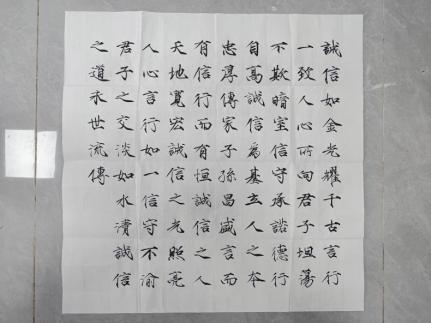 誠信如金光耀千古言行
一致人心所向君子坦蕩
不欺暗室信守承諾德行
自高誠信爲基立人之本
忠厚傳家子孫昌盛言而
有信行而有恒誠信之人
天地寬宏誠信之光照亮
人心言行如一信守不渝
君子之交淡如水清誠信
之道永世流傳